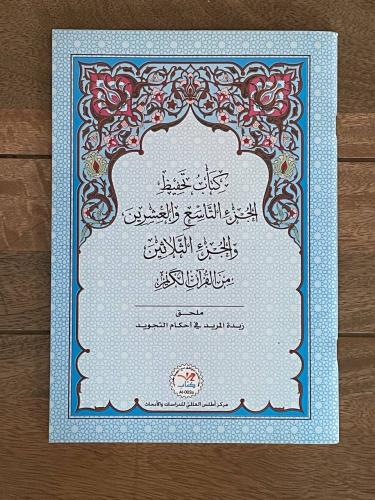 كتاب تحفيظ
الجزء التاسع والعشرين
والجزء الثلاثين
من القرآن الكريم
ملحق
زبدة المريد في أحكام التجويد
كتاب
مركز أطلس العالمي للدراسات والأبحاث